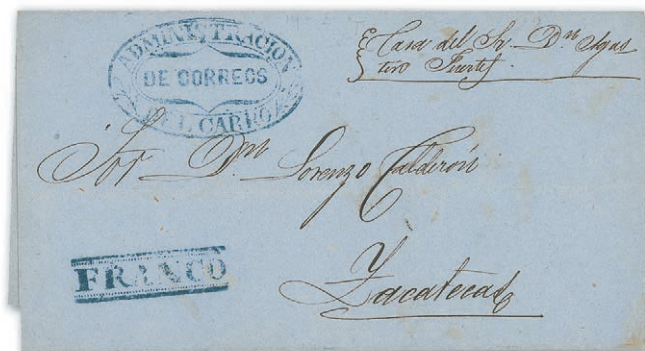 ADMINISTRACION
DE CORREOS
DEL CARRO
Casa del Sr. Dn. Agus
tin Fuertes
Sor. Dn. Lorenzo Calderón
Zacatecas
FRANCO